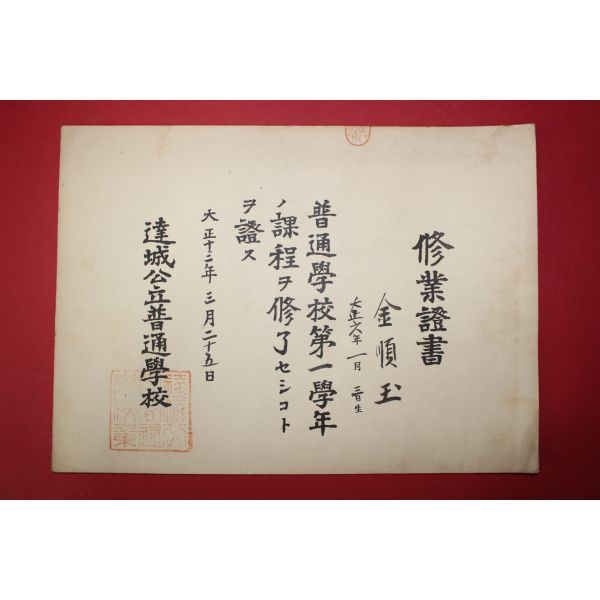 修業證書
金順玉
大正六年一月三日生
普通學校第一學年
ノ課程ヲ修了セシコト
ヲ證ス
大正十二年三月二十五日
達城公立普通學校